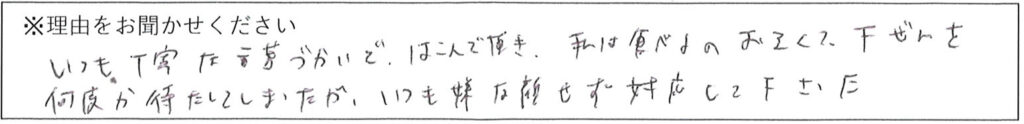 ※理由をお聞かせください
いつも丁寧な言葉づかいで、はこんで頂き、私は食べるのおそくて、下ぜんを
何度か待たしてしまいたが、いつも嫌な顔せず対応して下さいた